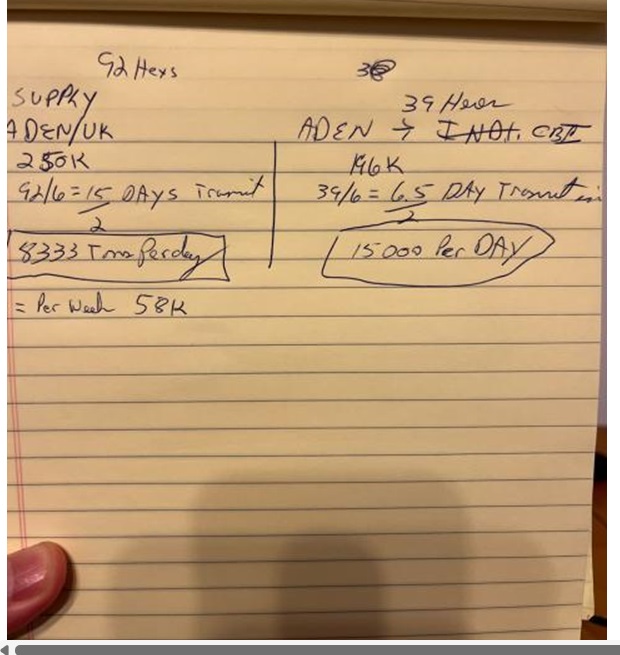 92 Hexs
SUPPLY
ADEN/UK
250K
92/6 = 15 DAYS Transit
2
8333 Tons Per day
= Per Week 58K
39
ADEN → INDI. CBI
196K
39/6 = 6.5 DAY Transit in
2
15000 Per DAY